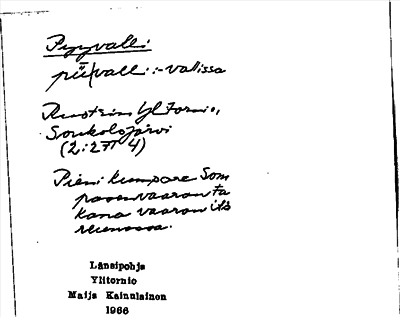 Pyyvalli
pü|vall : -valissa
Ruotsin Yl Tornio,
Soukolojärvi
(2:2711 4)
Pieni kumpare Som
pasenvaaran ta
kana vaaran itä
reunassa.
Länsipohja
Ylitornio
Maija Kainulainen
1966